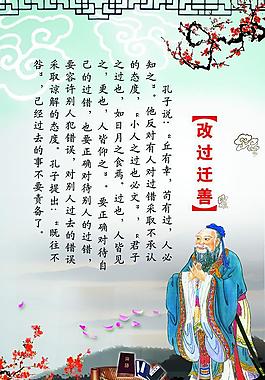 【改过迁善】
孔子说:“丘有幸,苟有过,人必
知之”。他反对有人对过错采取不承认
的态度,“小人之过也必文”,“君子
之过也,如日月之食焉。过也,人皆见
之,更也,人皆仰之”。要正确对待自
己的过错,也要正确对待别人的过错,
要容许别人犯错误,对别人过去的错误
采取谅解的态度。孔子提出:“既往不
咎”,已经过去的事不要责备了。